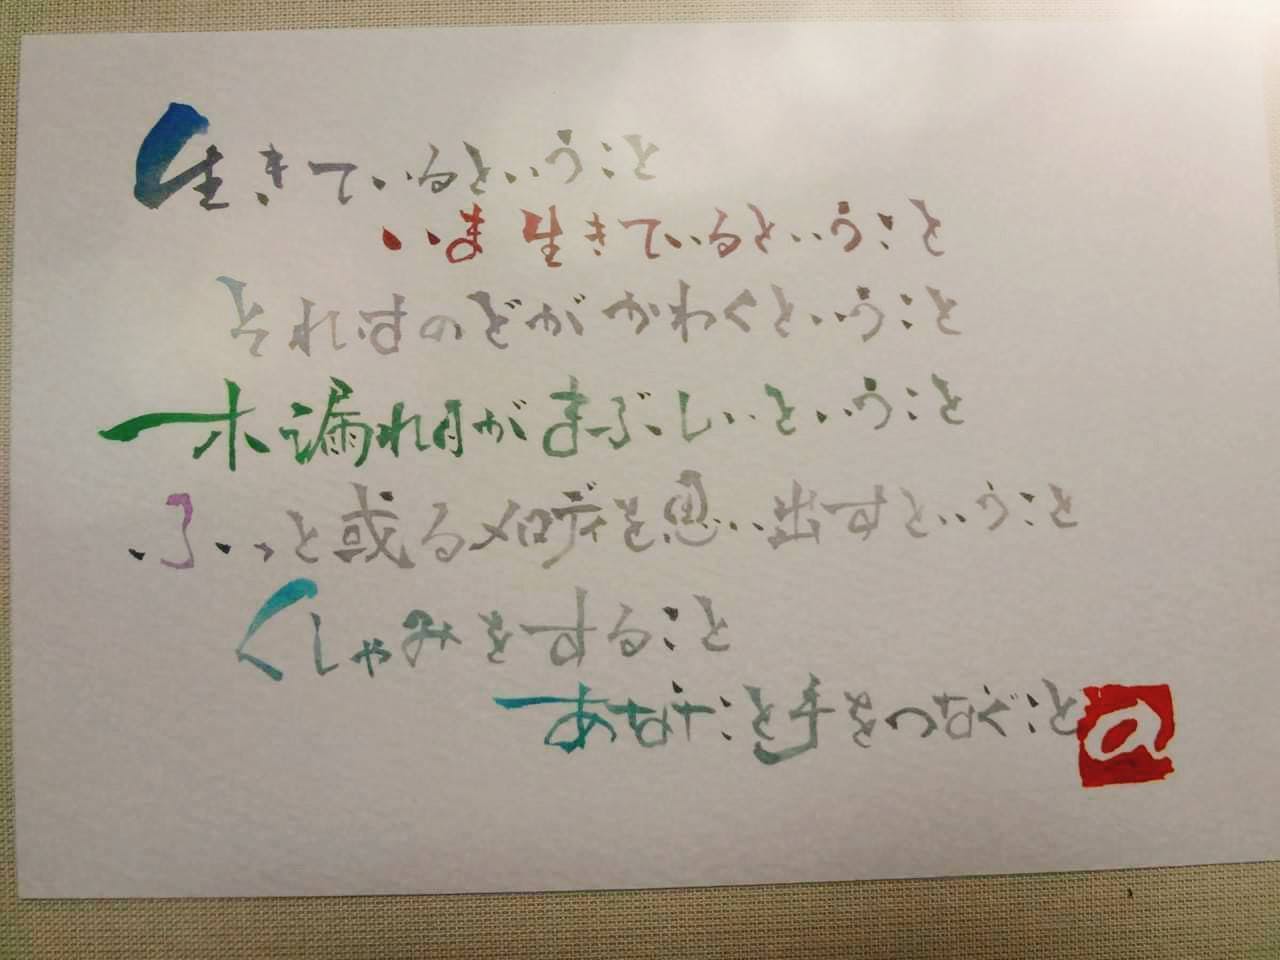 生きているということ
いま生きているということ
それはのどがかわくということ
木漏れ日がまぶしいということ
ふっと或るメロディを思い出すということ
くしゃみをすること
あなたと手をつなぐこと
a